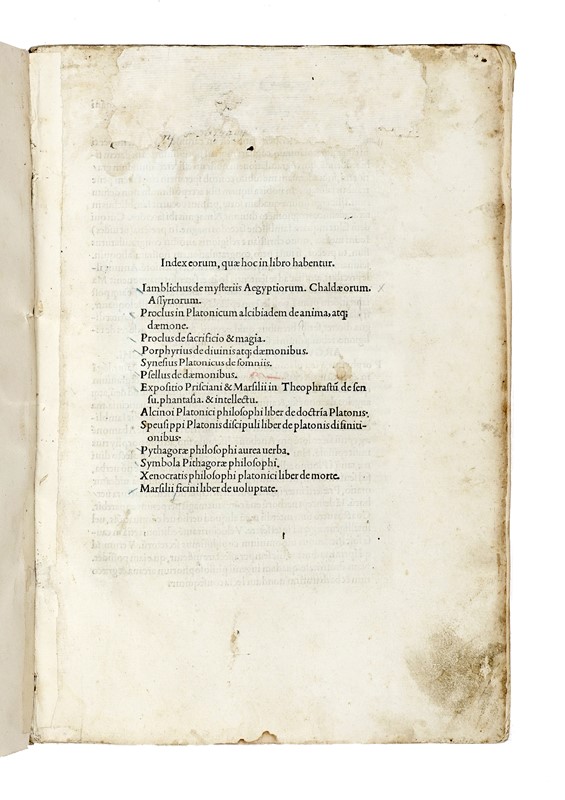 Index eorum, quæ hoc in libro habentur.
Iamblichus de mysteriis Aegyptiorum. Chaldæorum.
Assyriorum.
Proclus in Platonicum alcibiadem de anima, atq;
dæmone.
Proclus de sacrificio & magia.
Porphyrius de diuinis atq; dæmonibus.
Synesius Platonicus de somniis.
Psellus de dæmonibus.
Expositio Prisciani & Marsilii in Theophrastũ de sen
su, phantasia. & intellectu.
Alcinoi Platonici philosophi liber de doctrĩa Platonis.
Speusippi Platonis discipuli liber de platonis difiniti-
onibus.
Pythagoræ philosophi aurea uerba.
Symbola Pithagoræ philosophi.
Xenocratis philosophi platonici liber de morte.
Marsilii ficini liber de uoluptate.